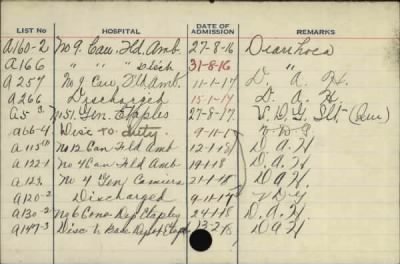 LIST NO. HOSPITAL DATE OF ADMISSION REMARKS
A160-2 No 9. Can. Fld. Amb. 27-8-16 Diarrhoea
A166 " " " disch 31-8-16 "
A257 No 9. Can. Fld. Amb. 11-1-17 D. A. H.
A266 Discharged 15-1-17 D. A. H.
No 51. Gen. Etaples 27-8-17. V. D. G.
A66-4 Disc to duty 9-11- V D G
A115 No 12 Can Fld Amb 12-1-18 D. A. H
A122-1 No 4 Can Fld Amb 19-1-18 D. A. H.
A123. No 4 Gen Camiers 21-1-18 D A H.
A120-2 Discharged 9-11-17 V D G
A130-2 No 6 Conv Dep Etaples 24-1-18 D. A. H.
A147-3 Disc to Base Dep Etap 13-2-18 D A H